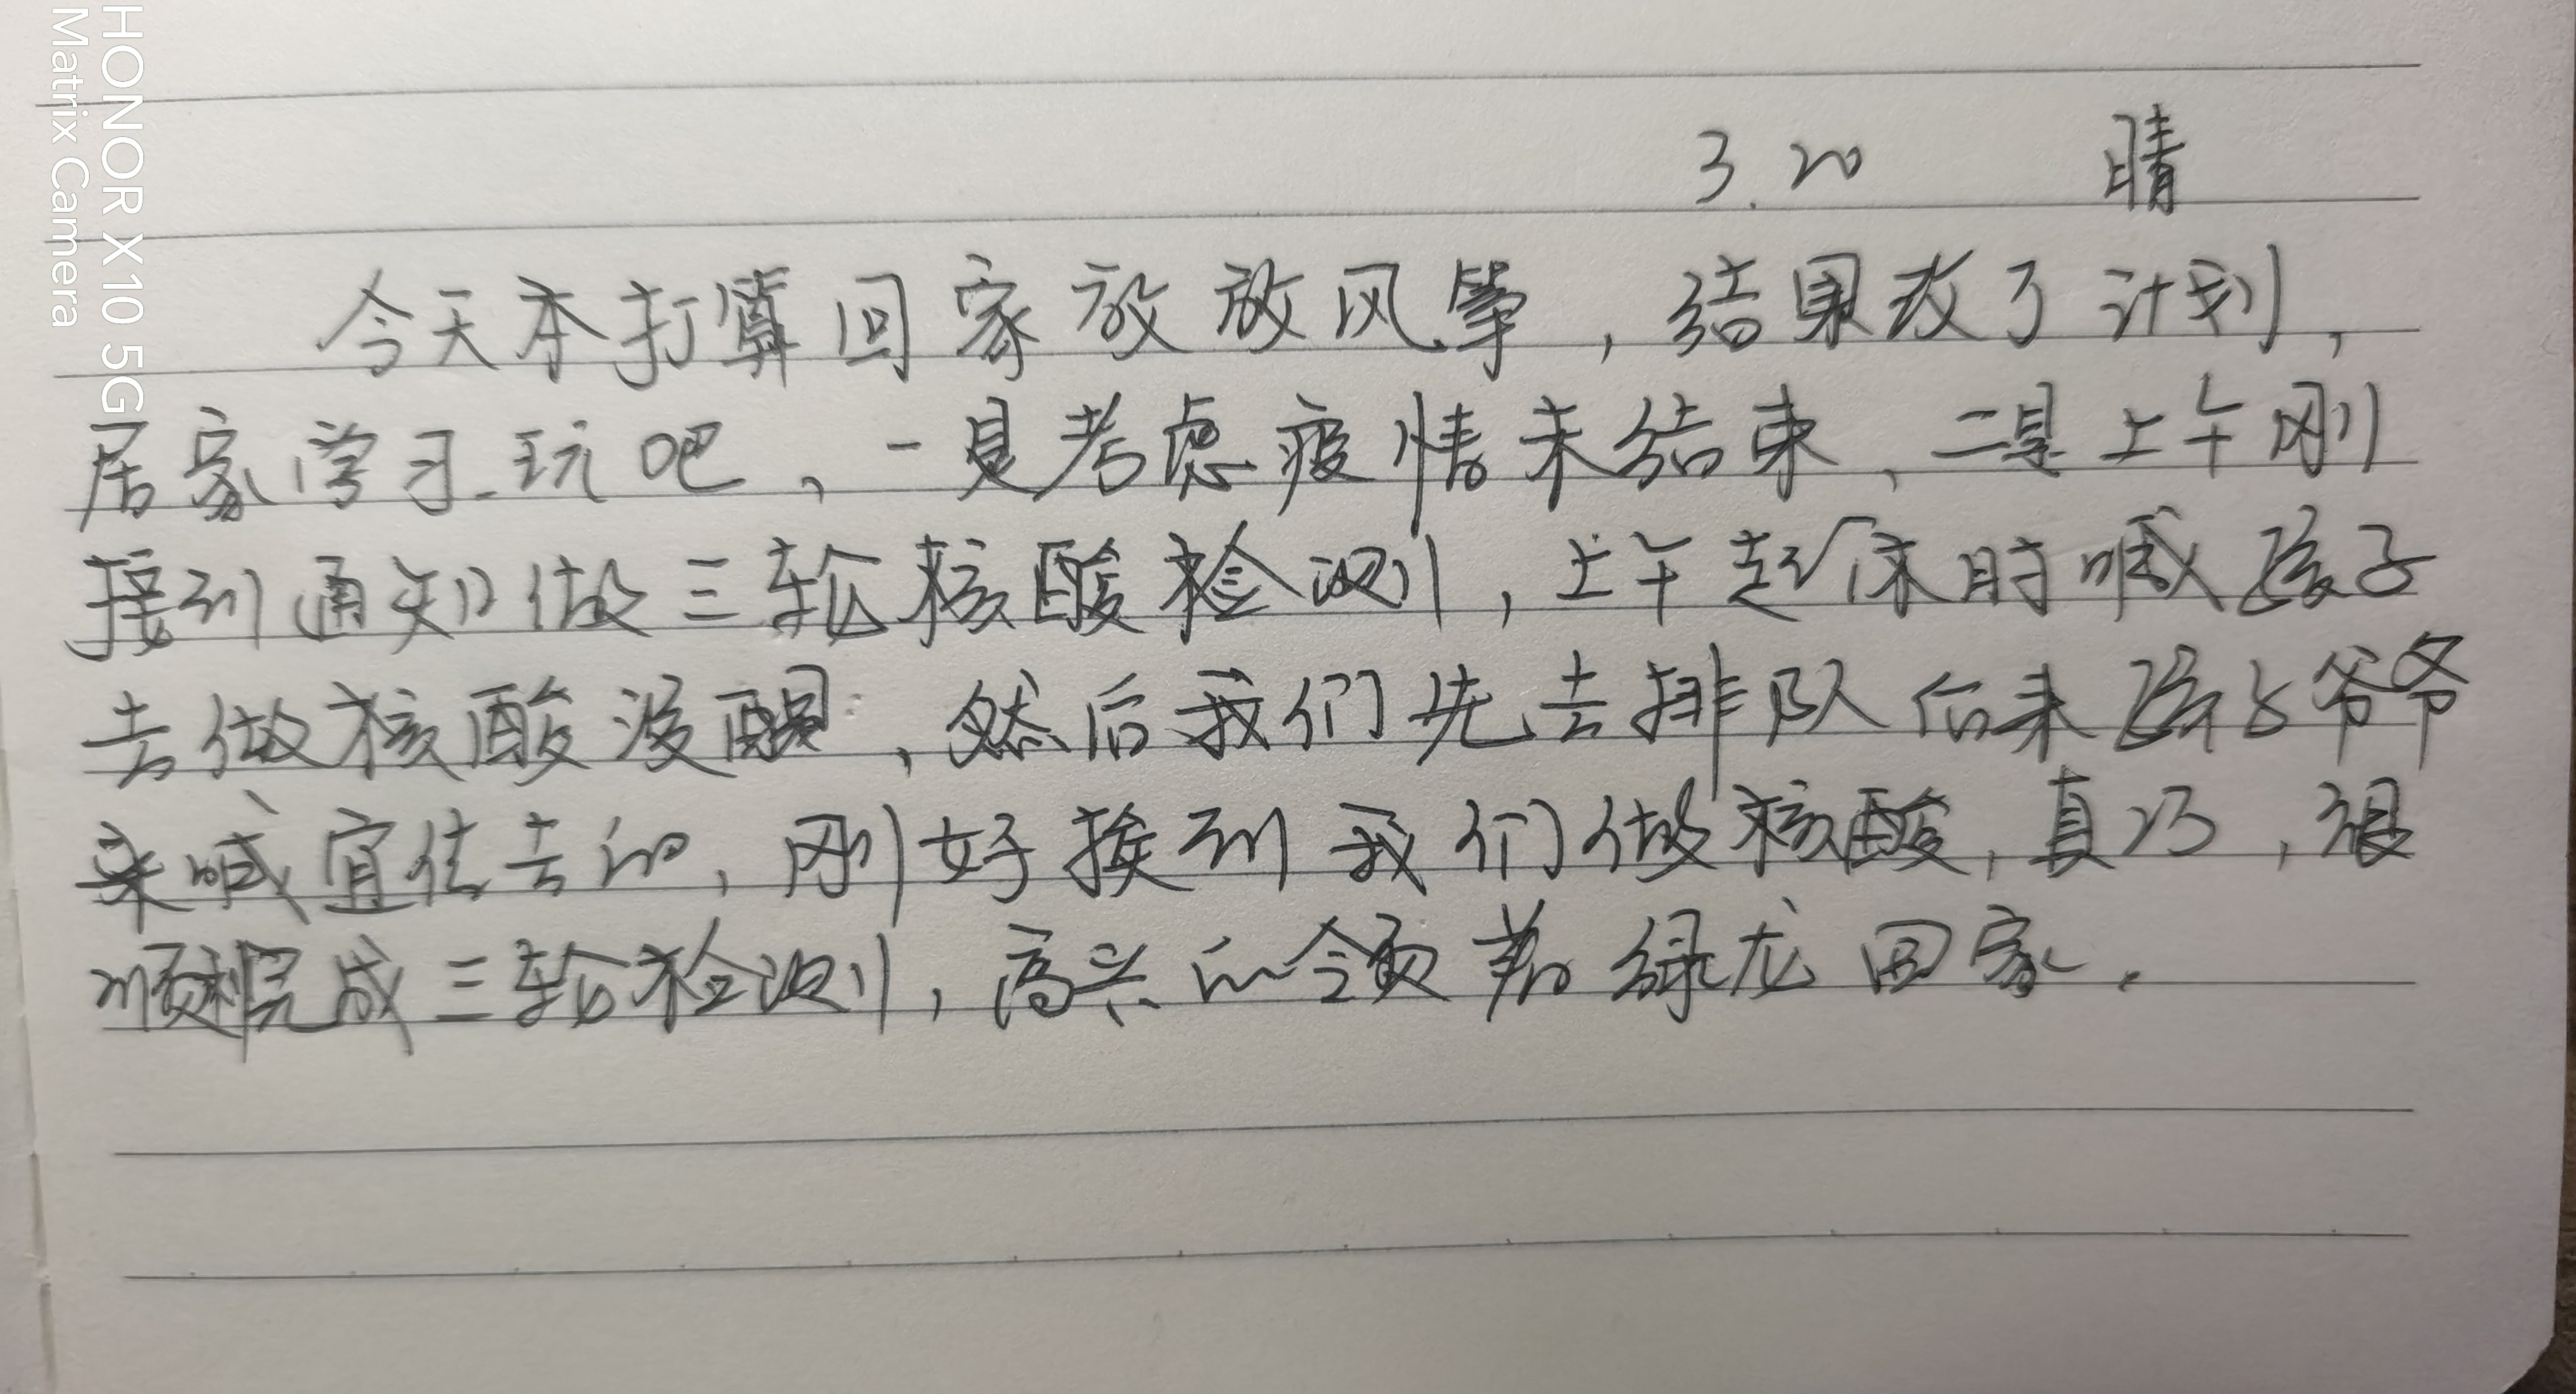 HONOR X10 5G
Matrix Camera
3.20 晴
今天本打算回家放放风筝，结果改了计划，
居家学习、玩吧，一是考虑疫情未结束，二是上午刚
接到通知做三轮核酸检测，上午起床时喊孩子
去做核酸没醒，然后我们先去排队后来孩子爷爷
来喊宜佳去的，刚好挨到我们做核酸，真巧，很
顺利完成三轮检测，高兴的领着绿龙回家。